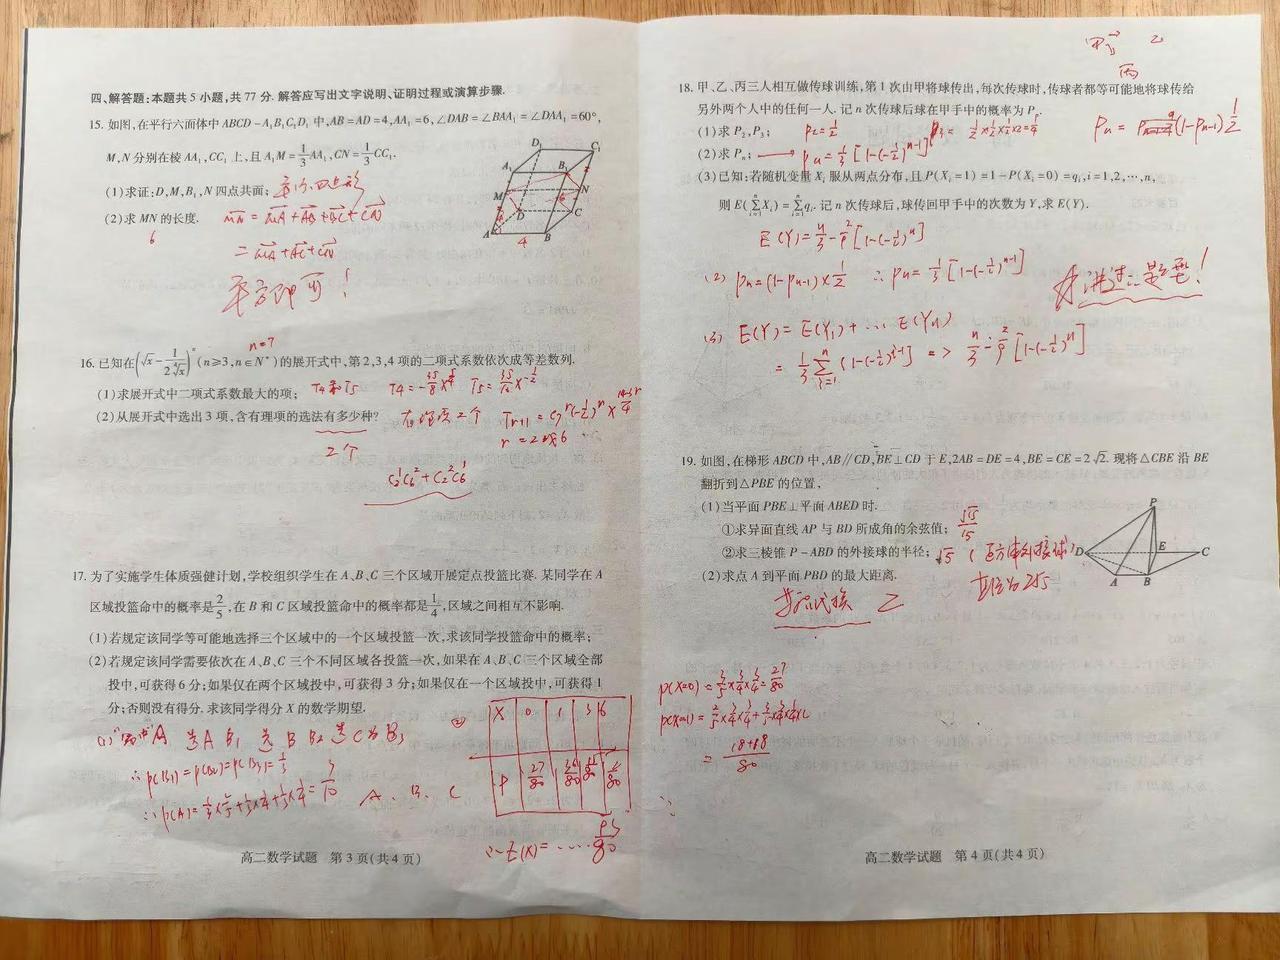 四、解答题:本题共5小题,共77分.解答应写出文字说明、证明过程或演算步骤.
15.如图,在平行六面体中ABCD-A₁B₁C₁D₁中,AB=AD=4,AA₁=6,∠DAB=∠BAA₁=∠DAA₁=60°,
M,N分别在棱AA₁,CC₁上,且A₁M=1/3AA₁,CN=1/3CC₁.
(1)求证:D,M,B₁,N四点共面;
(2)求MN的长度.
6
MN=MA+AB+BC+CN
=MA+AC+CN
平方即可!
D₁ C₁
A₁ B₁
M N
D C
A B
4
n=7
16.已知在(√x-1/(2∜x))ⁿ(n≥3,n∈N*)的展开式中,第2,3,4项的二项式系数依次成等差数列.
(1)求展开式中二项式系数最大的项;
T4和T5 T4=-35/8x^(5/4) T5=35/16x^(1/2)
(2)从展开式中选出3项,含有理项的选法有多少种?
有理项2个
r=2或6
2个
C₂¹C₆²+C₂²C₆¹
17.为了实施学生体质强健计划,学校组织学生在A、B、C三个区域开展定点投篮比赛.某同学在A
区域投篮命中的概率是2/5,在B和C区域投篮命中的概率都是1/4,区域之间相互不影响.
(1)若规定该同学等可能地选择三个区域中的一个区域投篮一次,求该同学投篮命中的概率;
(2)若规定该同学需要依次在A、B、C三个不同区域各投篮一次,如果在A、B、C三个区域全部
投中,可获得6分;如果仅在两个区域投中,可获得3分;如果仅在一个区域投中,可获得1
分;否则没有得分.求该同学得分X的数学期望.
∴P(B₁)=P(B₂)=P(B₃)=1/3
∴P(A)=1/3×2/5+1/3×1/4+1/3×1/4=3/10
A、B、C
②
X 0 1 3 6
P 27/80 36/80
∴E(X)=……93/80
高二数学试题 第3页(共4页)
甲 乙
丙
18.甲、乙、丙三人相互做传球训练,第1次由甲将球传出,每次传球时,传球者都等可能地将球传给
另外两个人中的任何一人.记n次传球后球在甲手中的概率为Pₙ.
(1)求P₂,P₃;
P₂=1/2
(2)求Pₙ;
Pₙ=1/3[1-(-1/2)^(n-1)]
(3)已知:若随机变量Xᵢ服从两点分布,且P(Xᵢ=1)=1-P(Xᵢ=0)=qᵢ,i=1,2,…,n,
则E(∑ⁿᵢ₌₁Xᵢ)=∑ⁿᵢ₌₁qᵢ.记n次传球后,球传回甲手中的次数为Y,求E(Y).
E(Y)=n/3-2/9[1-(-1/2)ⁿ]
(2) Pₙ=(1-Pₙ₋₁)×1/2 ∴Pₙ=1/3[1-(-1/2)^(n-1)]
(3) E(Y)=E(Y₁)+…E(Yₙ)
=1/3∑ⁿᵢ₌₁(1-(-1/2)^(i-1)) => n/3-2/9[1-(-1/2)ⁿ]
19.如图,在梯形ABCD中,AB∥CD,BE⊥CD于E,2AB=DE=4,BE=CE=2√2.现将△CBE沿BE
翻折到△PBE的位置.
(1)当平面PBE⊥平面ABED时.
①求异面直线AP与BD所成角的余弦值;
√15/15
②求三棱锥P-ABD的外接球的半径;
√5 (长方体外接球)
直径为2√5
(2)求点A到平面PBD的最大距离.
P
D E C
A B
P(X=0)=3/5×3/4×3/4=27/80
P(X=1)=2/5×3/4×3/4+3/5×3/4×1/4×2
=(18+18)/80
高二数学试题 第4页(共4页)